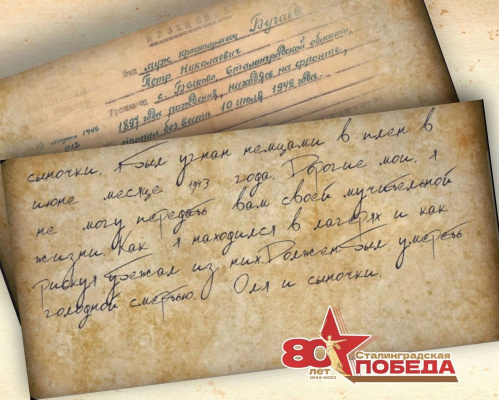 Ваш муж красноармеец Бугаев
Петр Николаевич
с. Быково Сталинградской области,
1897 года рождения, находясь на фронте,
пропал без вести 10 июля 1942 года.
марта 1946
сыночки. Был угнан немцами в плен в
июне месяце 1943 года. Дорогие мои, я
не могу передать вам своей мучительной
жизни. Как я находился в лагерях и как
рискуя убежал из них. Должен был умереть
голодной смертью. Оля и сыночки.
80
ЛЕТ
1943-2023
Сталинградская
ПОБЕДА